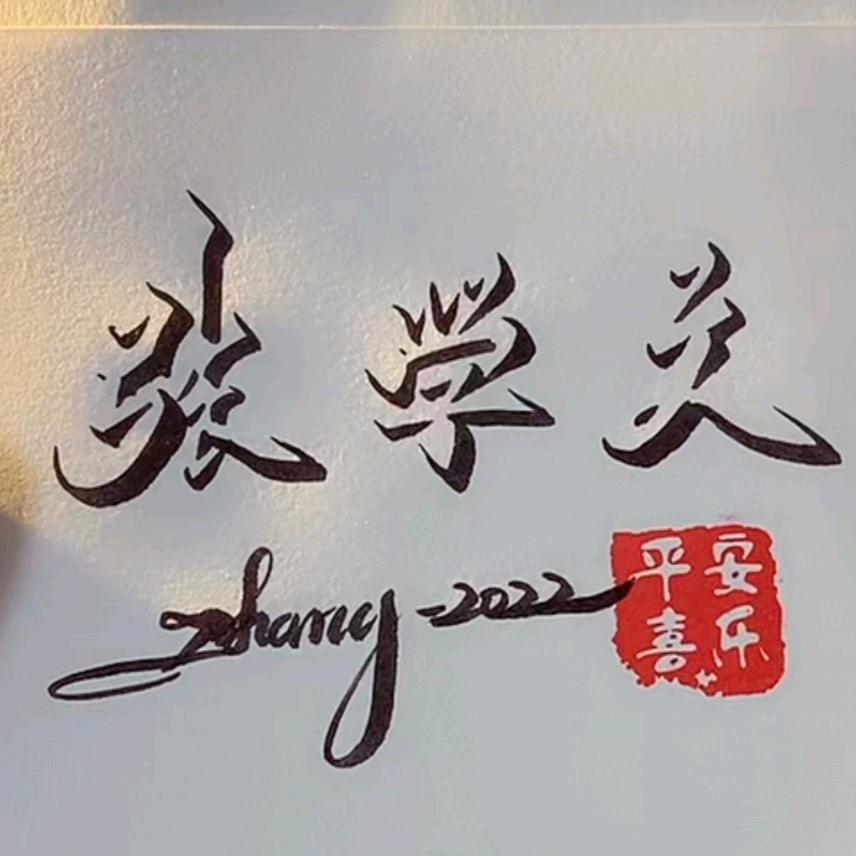 张学关
Zhang-2022
平安
喜乐